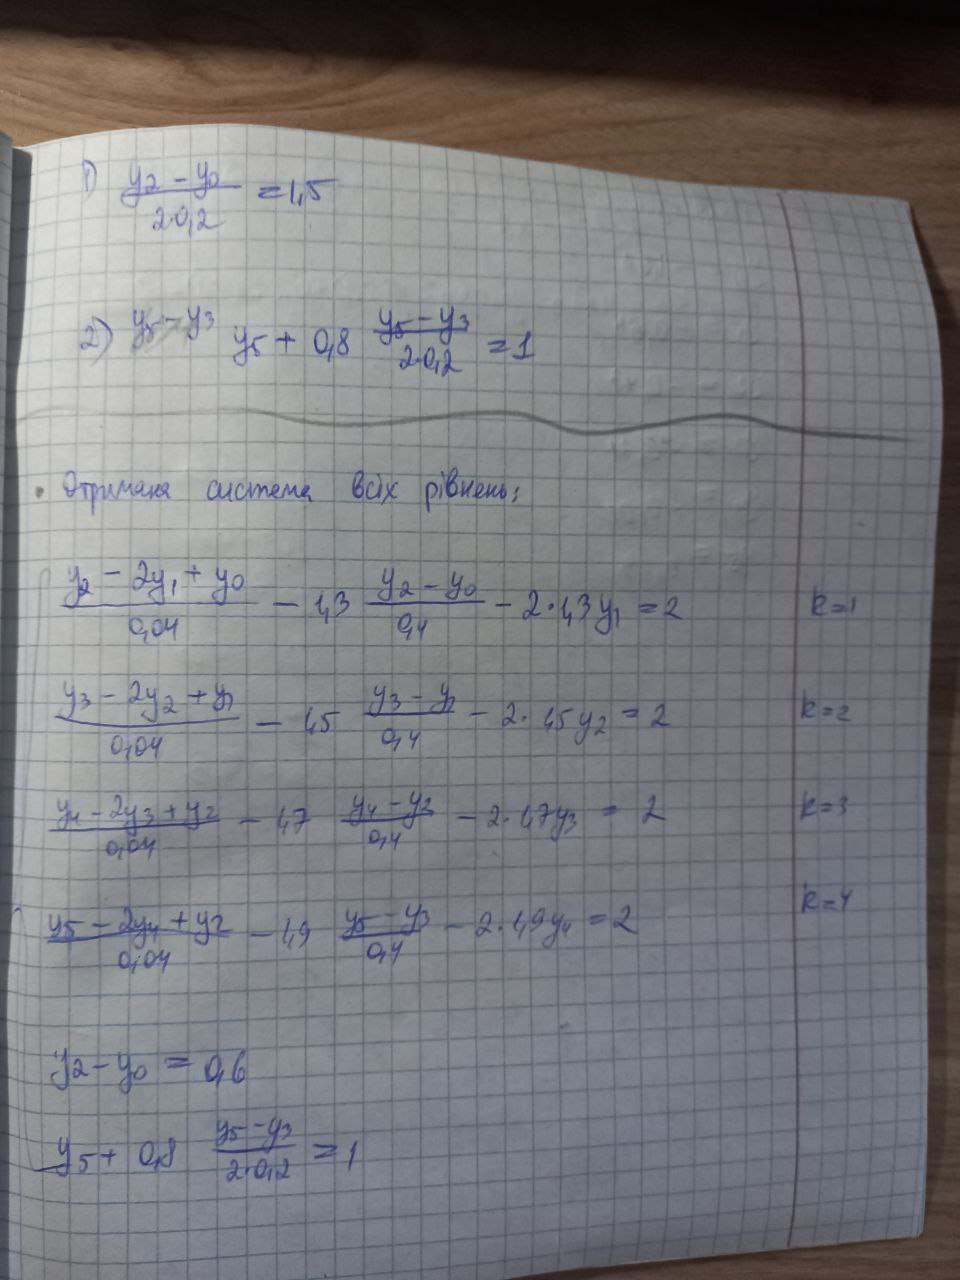 1) \frac{y_2 - y_0}{2 \cdot 0,2} = 1,5
2) y_5 - y_3 y_5 + 0,8 \frac{y_5 - y_3}{2 \cdot 0,2} = 1
• Отримана система всіх рівнень:
\frac{y_2 - 2y_1 + y_0}{0,04} - 1,3 \frac{y_2 - y_0}{0,4} - 2 \cdot 1,3 y_1 = 2 k=1
\frac{y_3 - 2y_2 + y_1}{0,04} - 1,5 \frac{y_3 - y_1}{0,4} - 2 \cdot 1,5 y_2 = 2 k=2
\frac{y_4 - 2y_3 + y_2}{0,04} - 1,7 \frac{y_4 - y_2}{0,4} - 2 \cdot 1,7 y_3 = 2 k=3
\frac{y_5 - 2y_4 + y_2}{0,04} - 1,9 \frac{y_5 - y_3}{0,4} - 2 \cdot 1,9 y_4 = 2 k=4
y_2 - y_0 = 0,6
y_5 + 0,8 \frac{y_5 - y_3}{2 \cdot 0,2} = 1